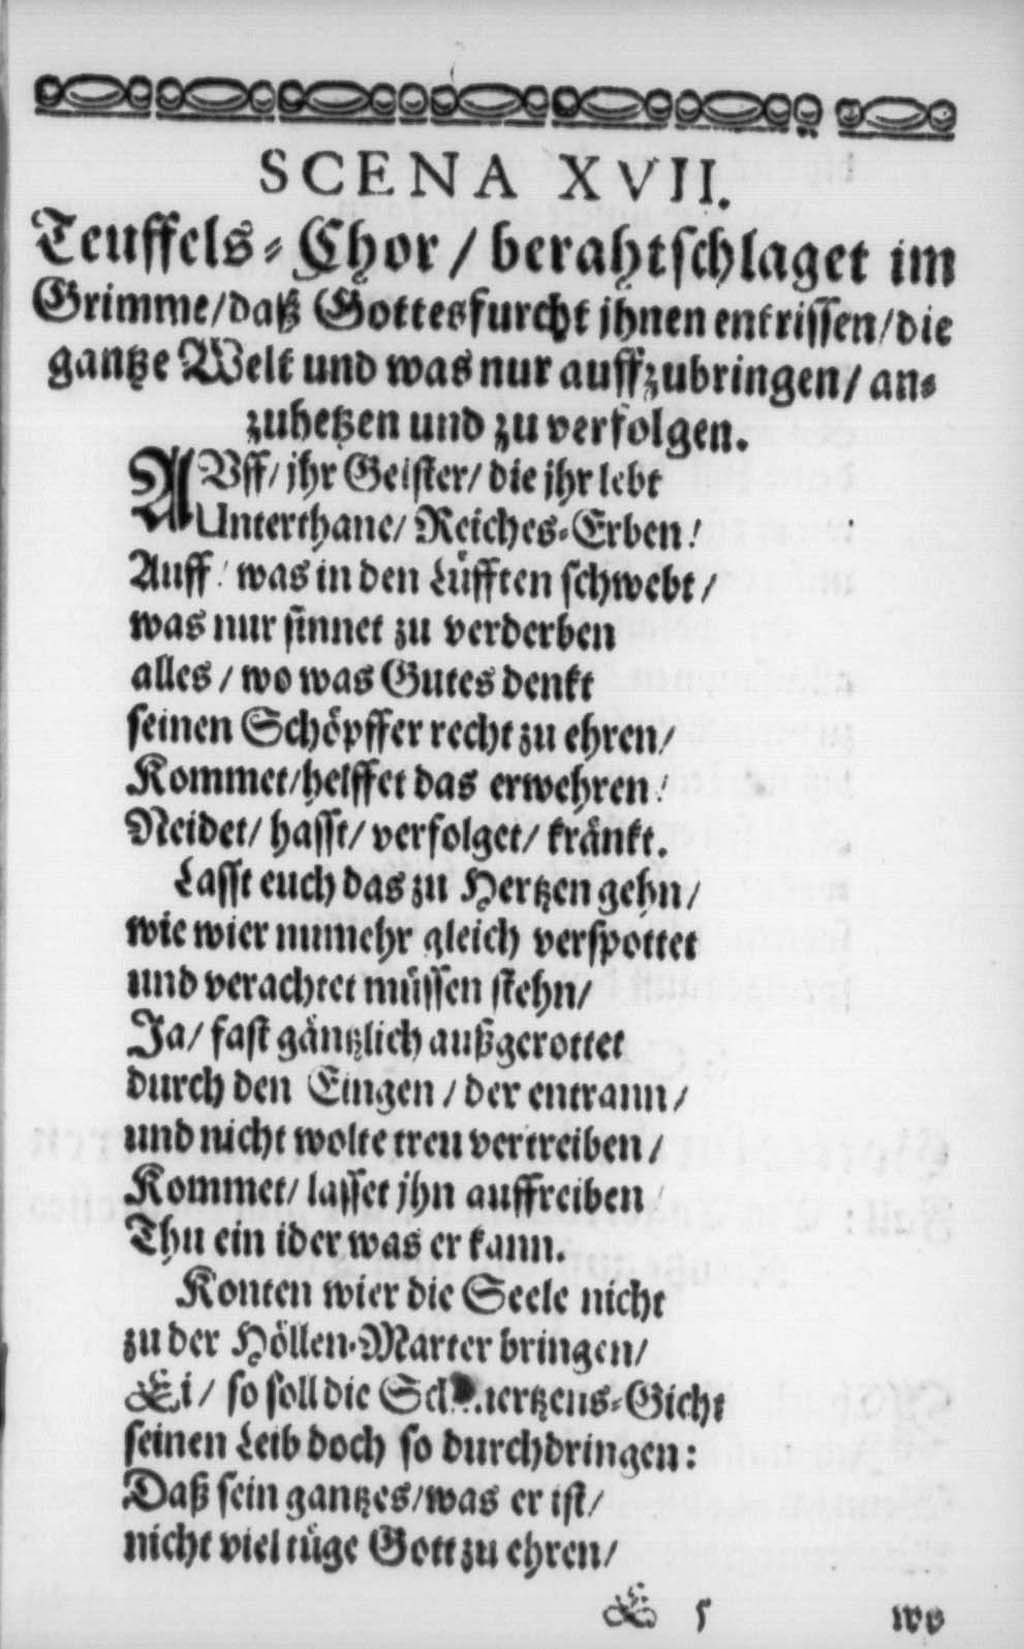 SCENA XVII.
Teuffels-Chor / berahtschlaget im
Grimme/daß Gottesfurcht jhnen entrissen/die
gantze Welt und was nur auffzubringen/ an-
zuhetzen und zu verfolgen.
AVff/ jhr Geister/ die jhr lebt
Unterthane/ Reiches-Erben!
Auff! was in den Lüfften schwebt/
was nur sinnet zu verderben
alles/ wo was Gutes denkt
seinen Schöpffer recht zu ehren/
Kommet/helffet das erwehren!
Neidet/ hasst/ verfolget/ kränkt.
Lasst euch das zu Hertzen gehn/
wie wier numehr gleich verspottet
und verachtet müssen stehn/
Ja/ fast gäntzlich außgerottet
durch den Eingen/ der entrann/
und nicht wolte treu vertreiben/
Kommet/ lasset jhn auffreiben
Thu ein ider was er kann.
Konten wier die Seele nicht
zu der Höllen-Marter bringen/
Ei/ so soll die Schmertzens-Gicht
seinen Leib doch so durchdringen:
Daß sein gantzes/was er ist/
nicht viel tüge Gott zu ehren/
E 5 wo